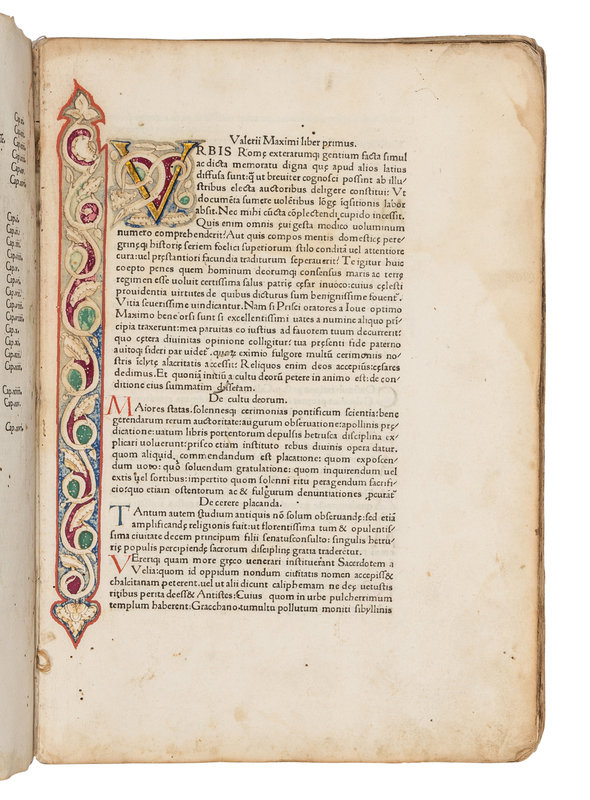 Cap.ii.
Cap.iii.
Cap.iiii.
Cap.v.
Cap.vi.
Cap.i.
Cap.ii.
Cap.iii.
Cap.iiii.
Cap.v.
Cap.x.
Cap.xi.
Cap.xii.
Cap.xiii.
Cap.xiiii.
Cap.xv.
Cap.xvi.
Valerii Maximi liber primus.
VRBIS Romę exterarumqꝫ gentium facta simul
ac dicta memoratu digna quę apud alios latius
diffusa sunt: q̃ ut breuiter cognosci possint ab illu⸗
stribus electa auctoribus deligere constitui: Vt
documenta sumere uolētibus lōgę īqsitionis labor
absit. Nec mihi cūcta cōplectendi cupido incessit.
Quis enim omnis ęui gesta modico uoluminum
numero comprehenderit? Aut quis compos mentis domesticę pere⸗
grinęqꝫ historię seriem foelici superiorum stilo conditā uel attentiore
cura: uel pręstantiori facundia traditurum sperauerit? Te igitur huic
coepto penes quem hominum deorumqꝫ consensus maris ac terrę
regimen esse uoluit certissima salus patrię cęsar inuoco: cuius cęlesti
prouidentia uirtutes de quibus dicturus sum benignissime fouent̃.
Vitia seuerissime uindicantur. Nam si Prisci oratores a Ioue optimo
Maximo bene orsi sunt si excellentissimi uates a numine aliquo prī⸗
cipia traxerunt: mea paruitas eo iustius ad fauorem tuum decurrerit:
quo cętera diuinitas opinione colligitur: tua pręsenti fide paterno
auitoqꝫ sideri par uidet̃. quorꝫ eximio fulgore multū cerimoniis no⸗
stris īclytę alacritatis accessit: Reliquos enim deos accepīus: cęsares
dedimus. Et quoniā initiū a cultu deorū petere in animo est: de con⸗
ditione eius summatim disseram.
De cultu deorum.
MAiores statas. solennesqꝫ cerimonias pontificum scientia: bene
gerendarum rerum auctoritate: augurum obseruatione: apollinis prę⸗
dicatione: uatum libris portentorum depulsis hetrusca disciplina ex⸗
plicari uoluerunt: prisco etiam instituto rebus diuinis opera datur.
quom aliquid commendandum est placatione: quom exposcen⸗
dum uoto: quō soluendum gratulatione: quom inquirendum uel
extis uel sortibus: impetrito quom solenni ritu peragendum sacrifi⸗
cio: quo etiam ostentorum ac & fulgurum denuntiationes ꝓcurāt̃
De cerere placanda.
TAntum autem studium antiquis nō solum obseruandę: sed etiā
amplificandę religionis fuit: ut florentissima tum & opulentis⸗
sima ciuitate decem principum filii senatusconsulto: singulis hetru⸗
rię populis percipiendę sacrorum disciplinę gratia traderetur.
VErerqꝫ quam more gręco uenerari instituerant Sacerdotem a
Velia: quom id oppidum nondum ciuitatis nomen accepiss&
chalcitanam peterent. uel ut alii dicunt caliphemam ne deę uetustis
ritibus perita deess& Antistes: Cuius quom in urbe pulcherrimum
templum haberent: Gracchano tumultu pollutum moniti sibyllinis